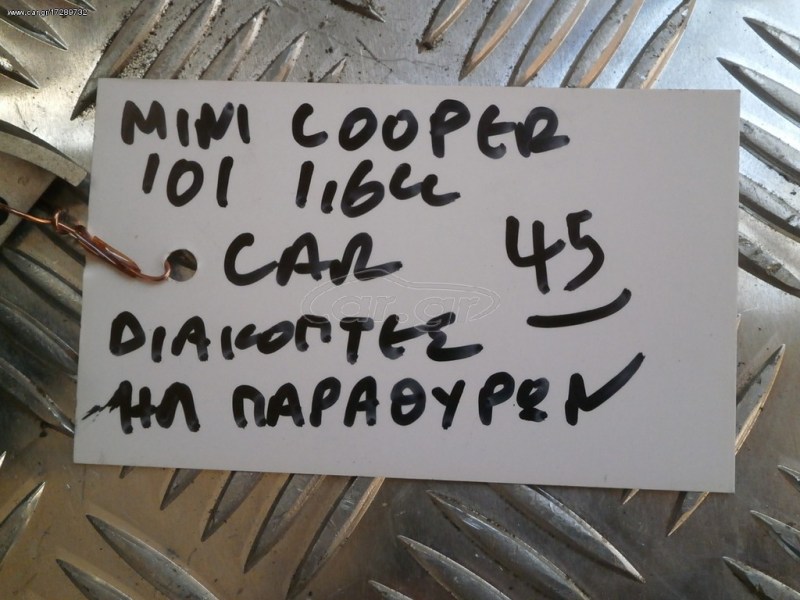 www.car.gr/17289732
MINI COOPER
101 1,6cc
CAR 45
car.gr
ΔΙΑΚΟΠΤΕΣ
ΗΛ ΠΑΡΑΘΥΡΩΝ